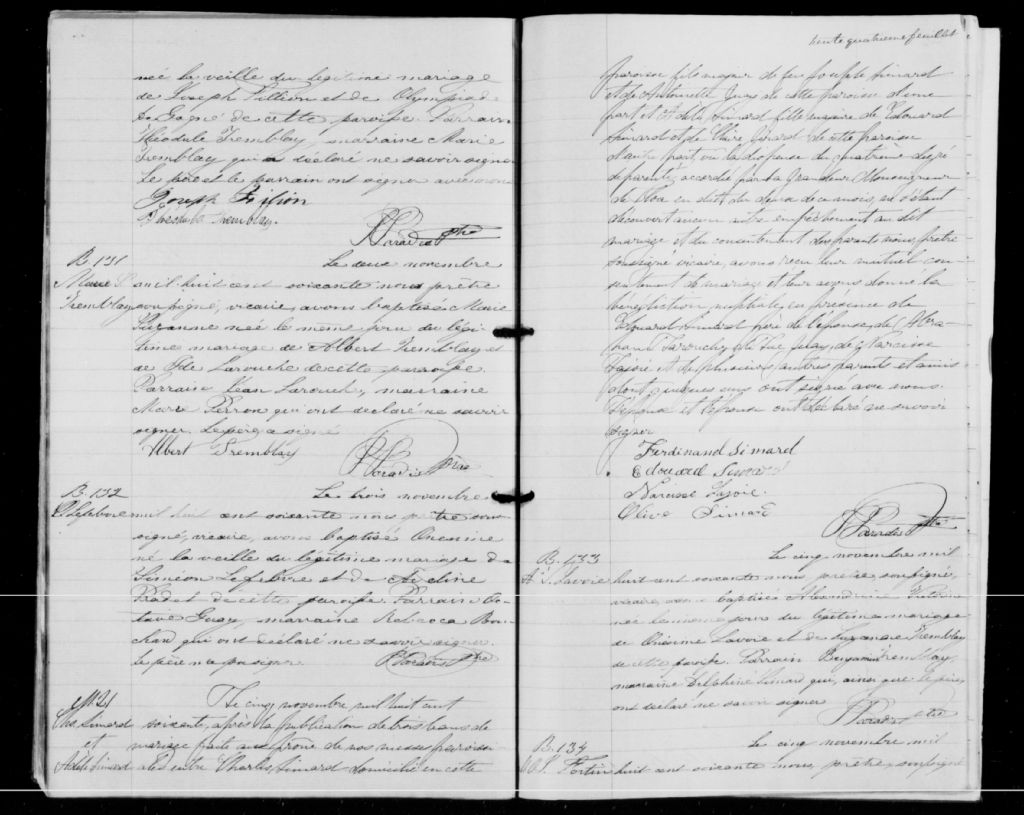 née la veille du légitime mariage
de Joseph Fillion et de Olympiade
Gagné de cette paroisse. Parrain
Théodule Tremblay, marraine Marie
Tremblay qui a déclaré ne savoir signer
Le père et le parrain ont signer avec nous
Joseph Filion
Theodule Tremblay.
Paradis Ptre
B. 131
Marie S.
Tremblay
Le deux novembre
mil huit cent soixante nous prêtre
soussigné, vicaire, avons baptisé Marie
Suzanne née le même jour du légi-
time mariage de Albert Tremblay et
de Larouche de cette paroisse.
Parrain Jean Larouch, marraine
Marie Perron qui ont déclaré ne savoir
signer. Le père a signé
Albert Tremblay
Paradis Ptre
B. 132
O. Lefebvre
Le trois novembre
mil huit cent soixante nous prêtre sous-
signé, vicaire, avons baptisé Onesime
né la veille du légitime mariage de
Siméon Lefebvre et de
Radet de cette paroisse. Parrain Oc-
tave Guay, marraine Rebecca Bou-
chard qui ont déclaré ne savoir signer.
le père n'a pas signer.
Paradis Ptre
M. 21
Chs. Simard
et
Adèle Simard
Le cinq novembre mil huit cent
soixante, après la publication de trois bans de
mariage faite au prône de nos messes paroissi-
ales entre Charles Simard domicilié en cette
trente quatrieme feuillet
paroisse fils majeur de feu Joseph Simard
et de Antoinette Guay de cette paroisse d'une
part et Adèle Simard fille majeure de Edouard
Simard et de Claire Girard de cette paroisse
d'autre part, vu la dispense du quatrième degré
de parenté accordée par Sa Grandeur Monseigneur
de Tloa en date du deux de ce mois, ne s'étant
découvert aucun autre empêchement au dit
mariage et du consentement des parents nous, prêtre
soussigné vicaire, avons reçu leur mutuel con-
sentement de mariage et leur avons donné la
bénédiction nuptiale, en présence de
Edouard Simard père de l'épouse, de Abra-
ham Larouche, de Luc Guay, de Narcisse
Lajoie et de plusieurs autres parents et amis
dont quelques uns ont signé avec nous.
L'époux et l'épouse ont déclaré ne savoir
signer
Ferdinand Simard
Edouard Simard
Narcisse Lajoie.
Olive Simard
Paradis Ptre
B. 133
A. V. Lavoie
Le cinq novembre mil
huit cent soixante nous, prêtre, soussigné,
vicaire, avons baptisée Alexandrine
née le même jour du légitime mariage
de Onésime Lavoie et de Suzanne Tremblay
de cette paroisse. Parrain Benjamin Tremblay,
marraine Delphine Simard qui, ainsi que le père,
ont déclaré ne savoir signer
Paradis Ptre
B. 134
Fortin
Le cinq novembre mil
huit cent soixante nous, prêtre, soussigné